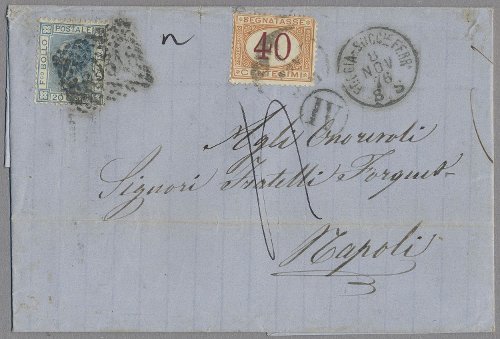 POSTALE
BOLLO
20
n
SEGNATASSE
40
CENTESIMI
FOGGIA-SUCCLE FERRA
8
NOV
76
8 S
Agli Onorevoli
Signori Fratelli Forquet
Napoli